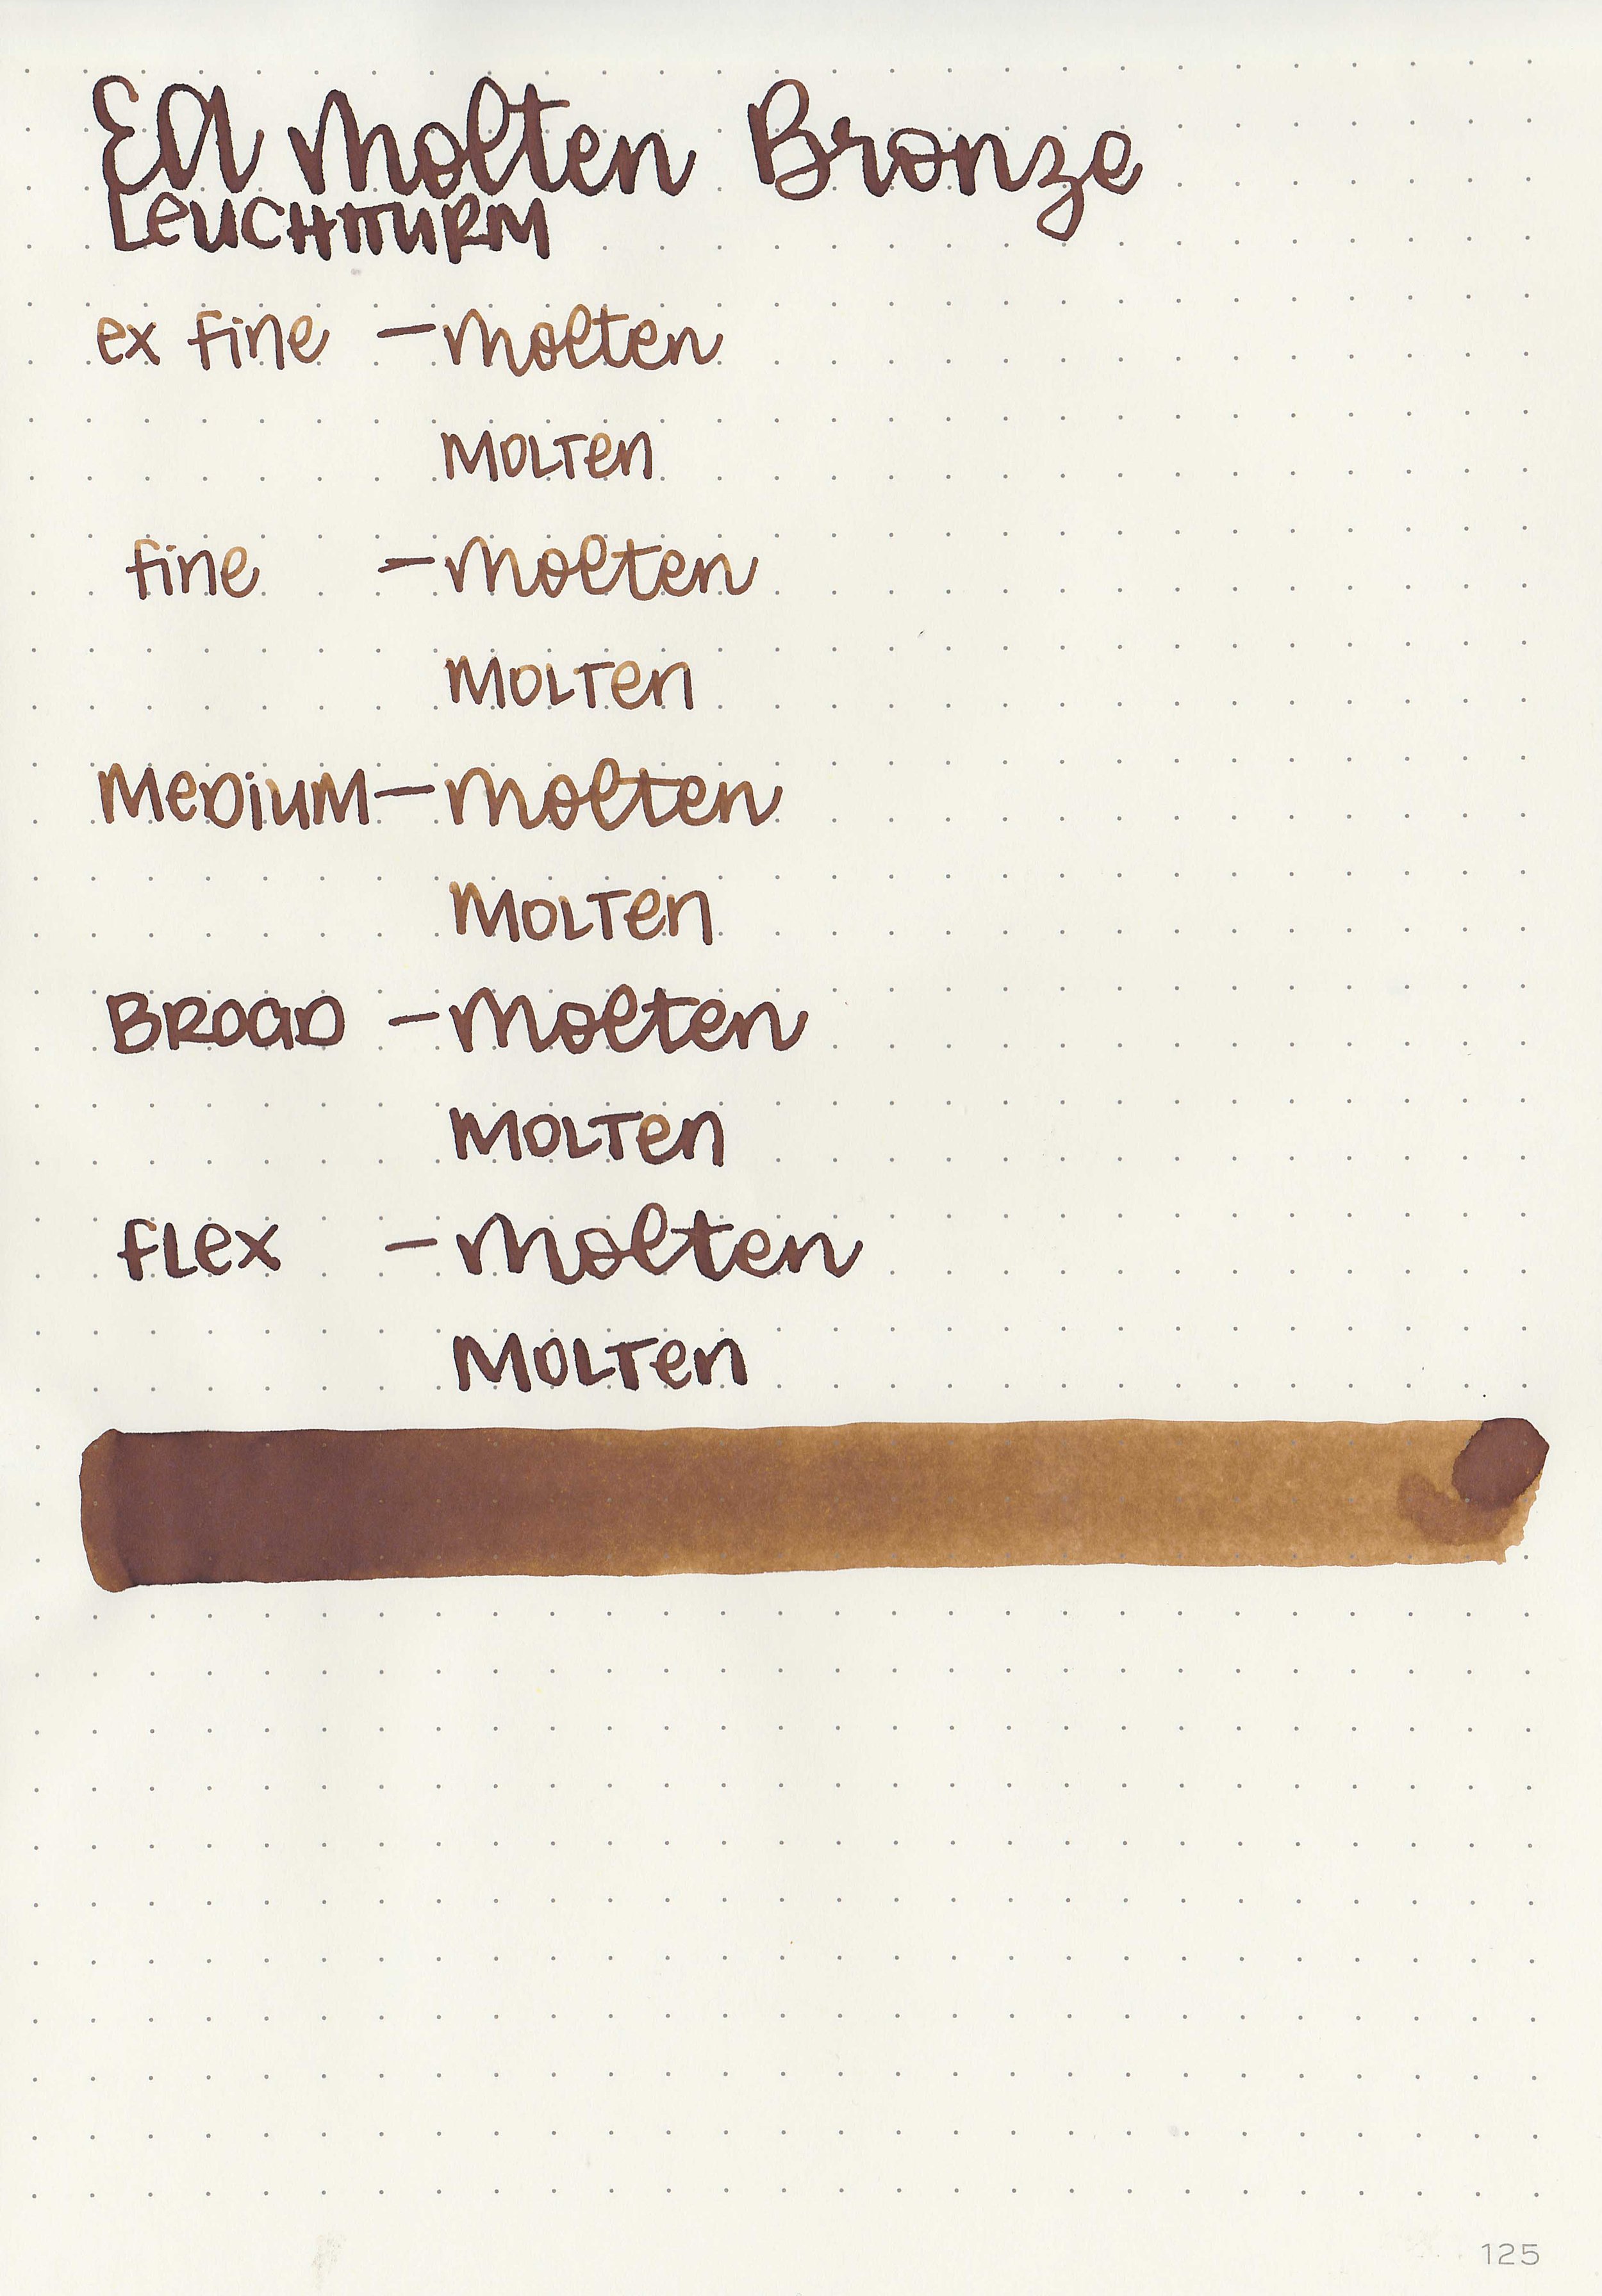 EA Molten Bronze
LEUCHTTURM
ex fine – molten
MOLTEN
fine – molten
MOLTEN
MEDIUM – molten
MOLTEN
BROAD – molten
MOLTEN
FLEX – molten
MOLTEN
125